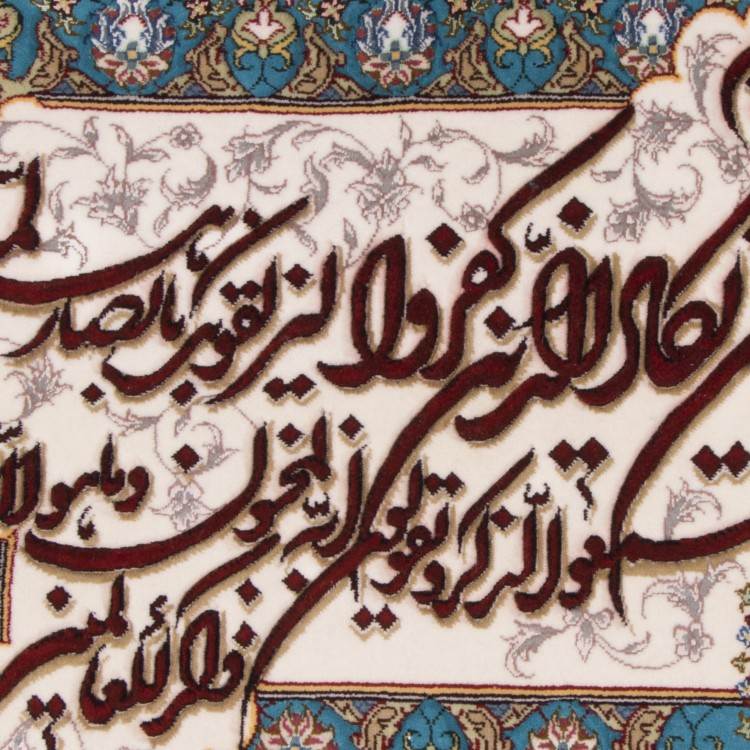 یکاد الذین کفروا لیزلقونک بابصارهم لما
سمعوا الذکر و یقولون انه لمجنون و ما هو الا
ذکر للعالمین